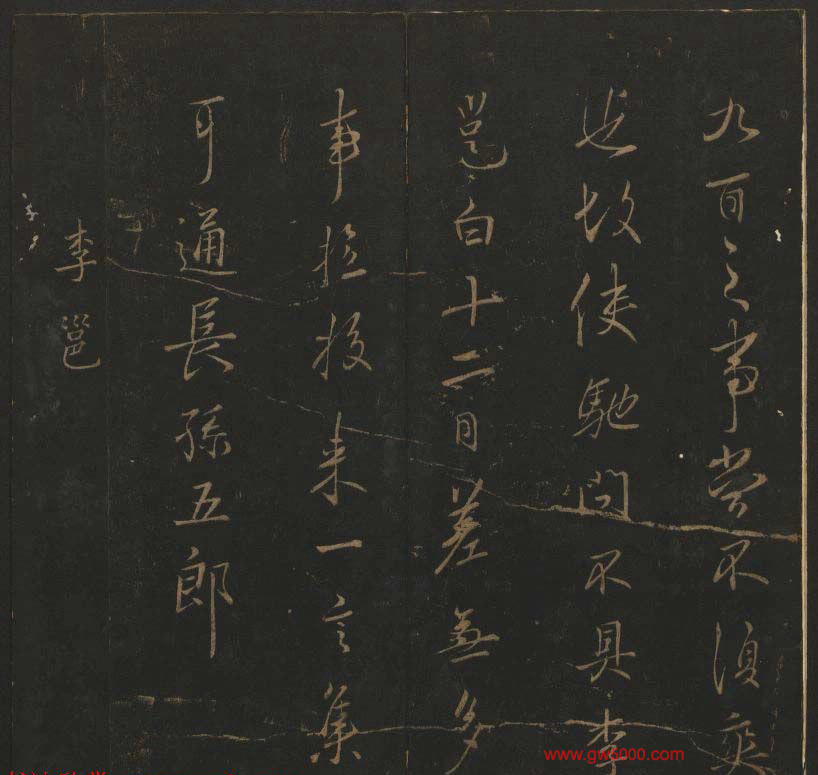 九百之事当不須爽
也故使馳問不具李
邕白十二日差無多
事檢校來一言集
可通長孫五郎
李邕
www.gw5000.com